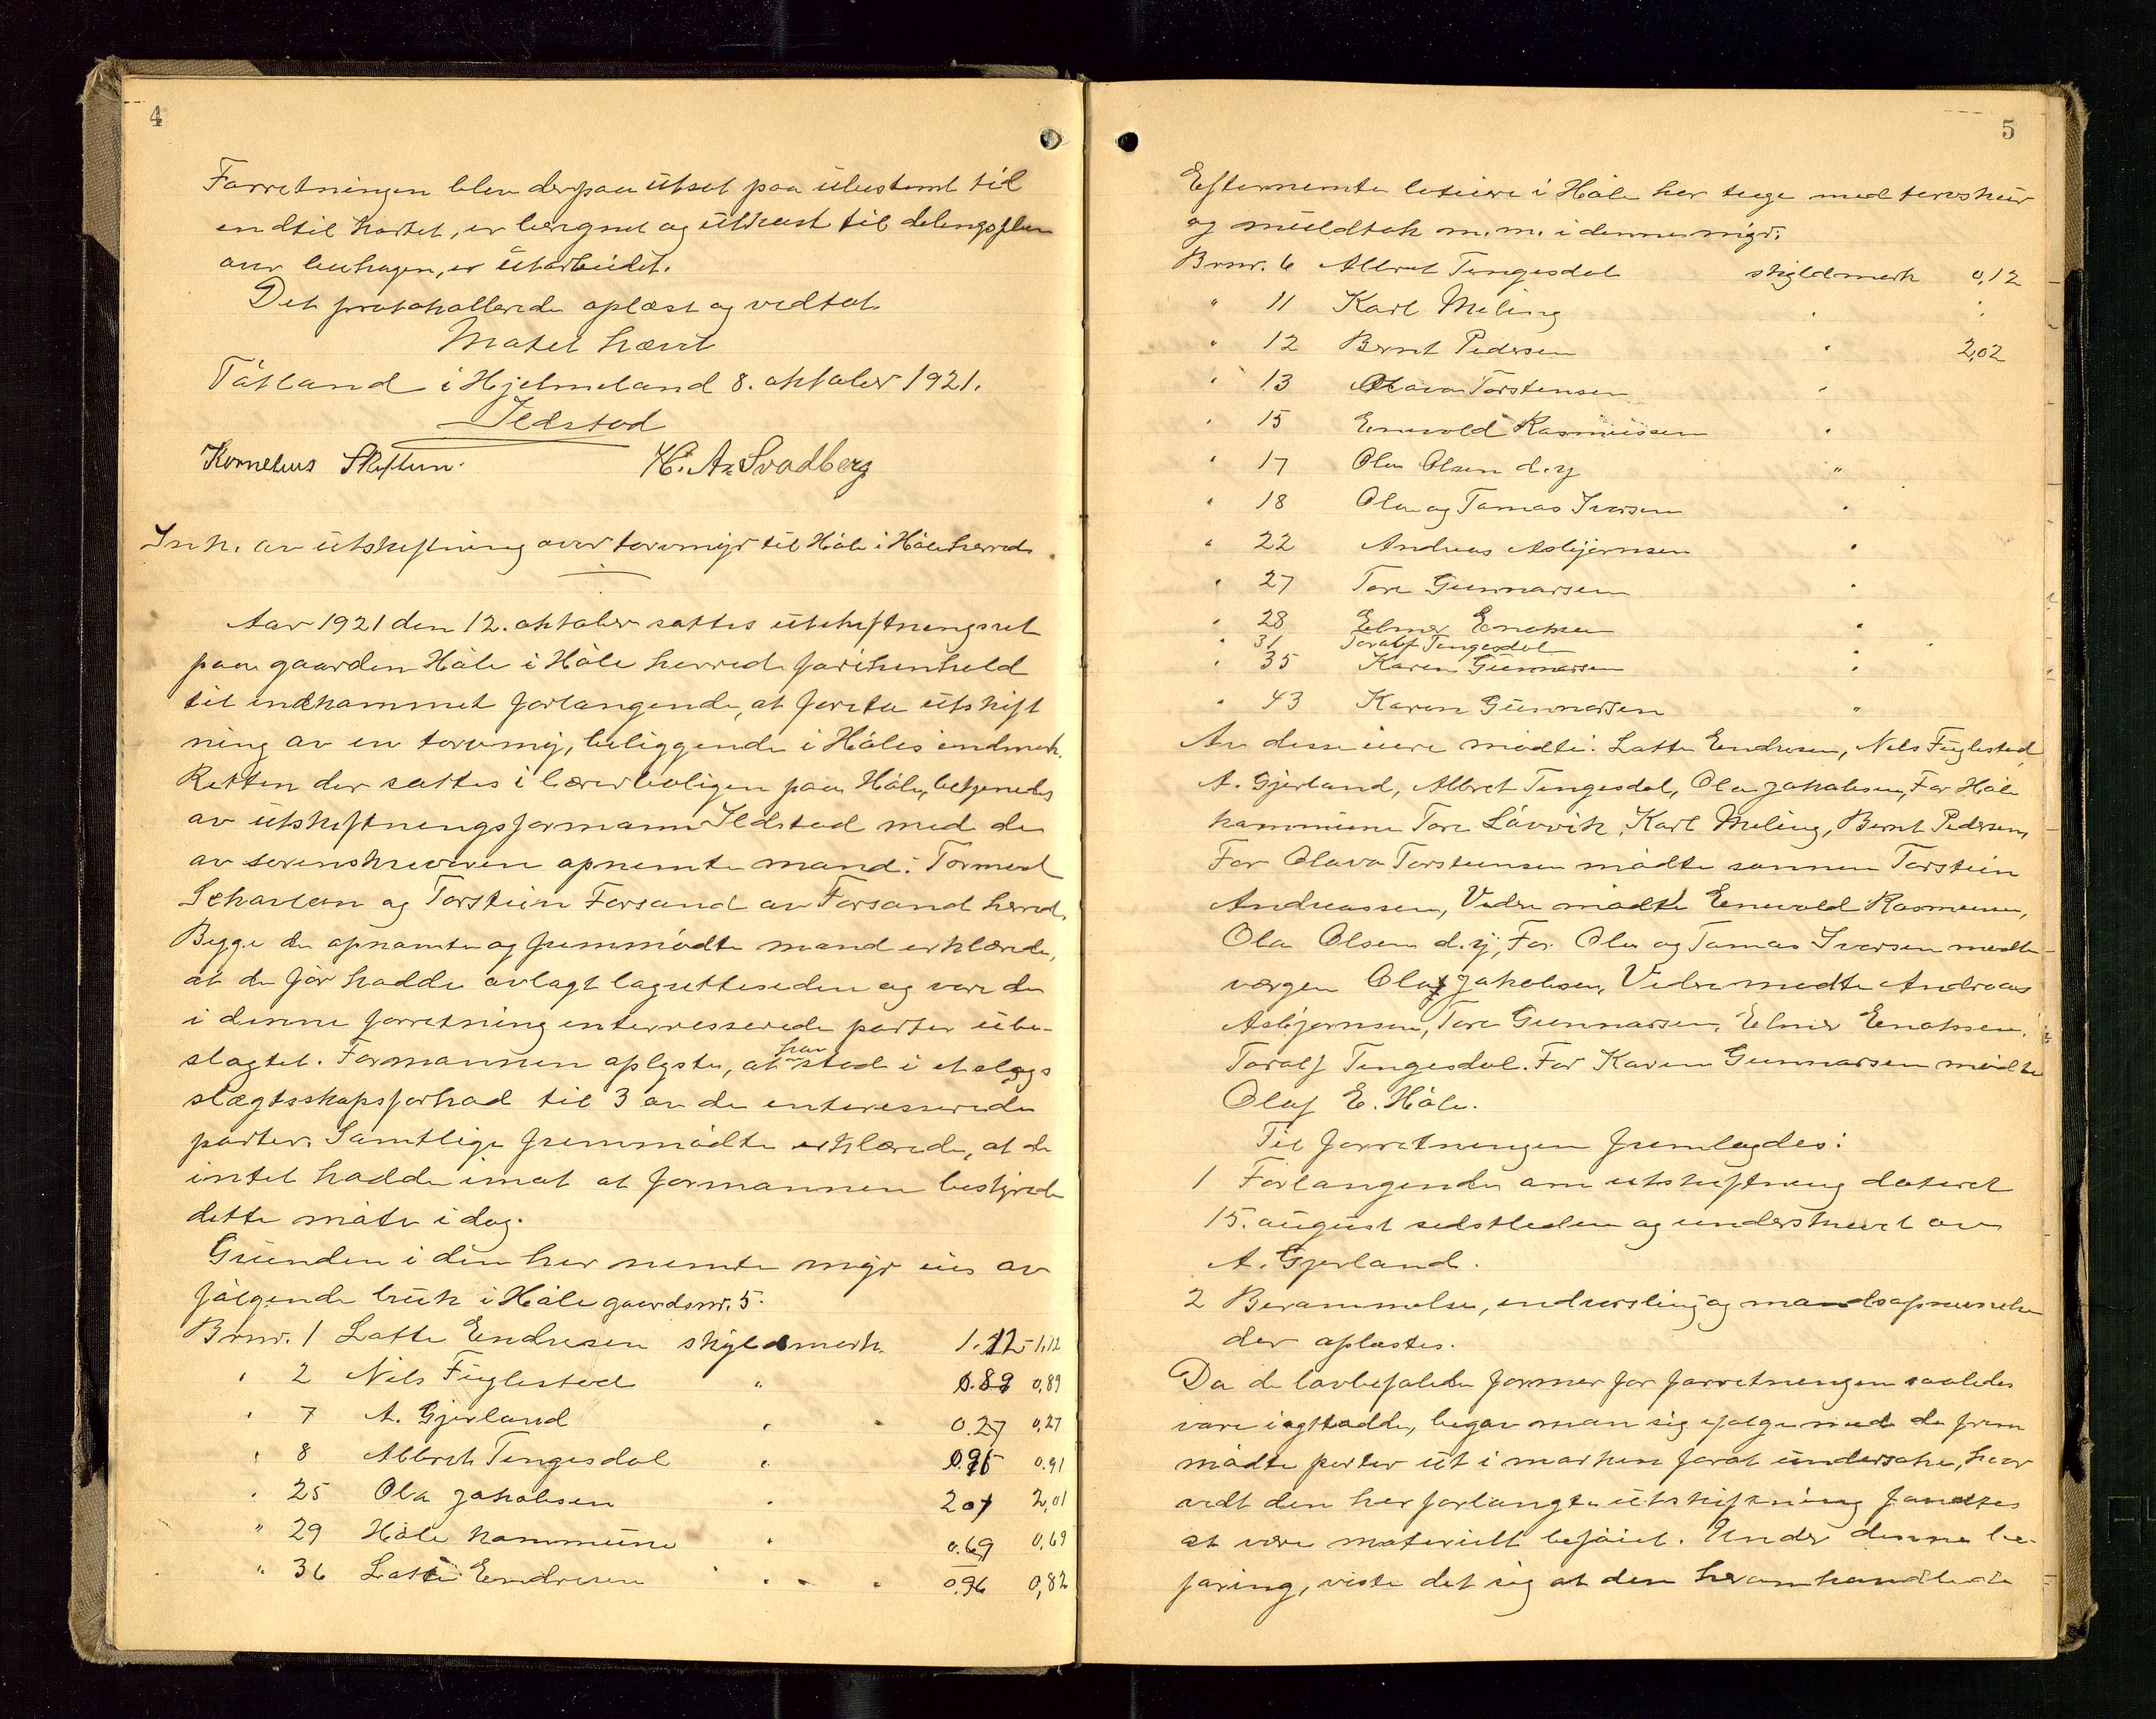 4
Forretningen blev derpaa utsat paa ubestemt tid
indtil kartet, er beregnet og utkast til delingsplan
over beihagen, er utarbeidet.
Det protokollerede oplæst og vedtat.
Møtet hævt
Tøtland i Hjelmeland 8. oktober 1921.
Ildstad
Kornelius Skiftun. H. A. Svadberg
Ink. av utskiftning over torvmyr til Høle i Høle herred.
Aar 1921 den 12. oktober sattes utskiftningsret
paa gaarden Høle i Høle herred forihenhold
til indkommet forlangende, at foreta utskift
ning av en torvmyr, beliggende i Høles indmark.
Retten der sattes i lærerboligen paa Høle, betjenedes
av utskiftningsformann Ildstad med de
av sorenskriveren opnemte mænd: Tormod
og Torstein Forsand av Forsand herred.
Begge de opnævnte og fremmødte mænd erklærede,
at de før hadde avlagt lagretteseden og var de
i denne forretning interesserede parter ube-
slægtet. Formannen oplyste, at han stod i et slags
slægtsskapsforhod til 3 av de interesserede
parter. Samtlige fremmødte erklærede, at de
intet hadde imot at formannen bestyrede
dette møte i dag.
Grunden i den her nemte myr eies av
følgende bruk i Høle gaardsnr. 5.
Brnr. 1 Lotte Endresen skyldmark. 1.12 - 1,12
" 2 Nils Fuglestad " 0.89 0,89
" 7 A. Gjerland " " 0.27 0,27
" 8 Albret Tengesdal " 0.91
" 25 Ola Jakobsen " 2.01 2,01
" 29 Høle kommune " 0.69 0,69
" 36 Lotte Endresen " " " 0.96 0,82
5
Efternemte loteiere i Høle har teige med torvskur
og muldtak m.m. i denne myr:
Brnr. 6 Albret Tengesdal skyldmark 0,12
" 11 Karl Meling "
" 12 Bernt Pedersen " 2,02
" 13 Olava Torstensen "
" 15 Enevold Rasmussen "
" 17 Ola Olsen d.y "
" 18 Ola og Tomas Iversen "
" 22 Andreas Asbjørnsen "
" 27 Tore Gunnarsen "
" 28 Elmer Enoksen "
" 31 Toralf Tengesdal
" 35 Karen Gunnarsen "
" 43 Karen Gunnarsen "
Av disse eiere mødte: Lotte Endresen, Nils Fuglestad,
A. Gjerland, Albret Tengesdal, Ola Jakobsen, For Høle
kommune Tore Løvvik, Karl Meling, Bernt Pedersen,
For Olava Torsteinsen mødte sønnen Torstein
Andreassen, Videre mødte Enevold Rasmussen,
Ola Olsen d.y, For Ola og Tomas Iversen mødte
værgen Ola Jakobsen, Videre mødte Andreas
Asbjørnsen, Tore Gunnarsen, Elmer Enoksen,
Toralf Tengesdal. For Karen Gunnarsen mødte
Olaf E. Høle.
Til forretningen fremlagdes:
1 Forlangende om utskiftning dateret
15. august sidstleden og underskrevet av
A. Gjerland.
2 Berammelse, indvarsling og mandsopnevnelse
der oplæstes.
Da de lovbefalede former for forretningen saaledes
var iagttadde, begav man sig ifølge med de frem
mødte parter ut i marken forat undersøke, hvor
vidt den her forlangte utskiftning fandtes
at være materielt beføiet. Under denne be-
faring, viste det sig at den heromhandlede